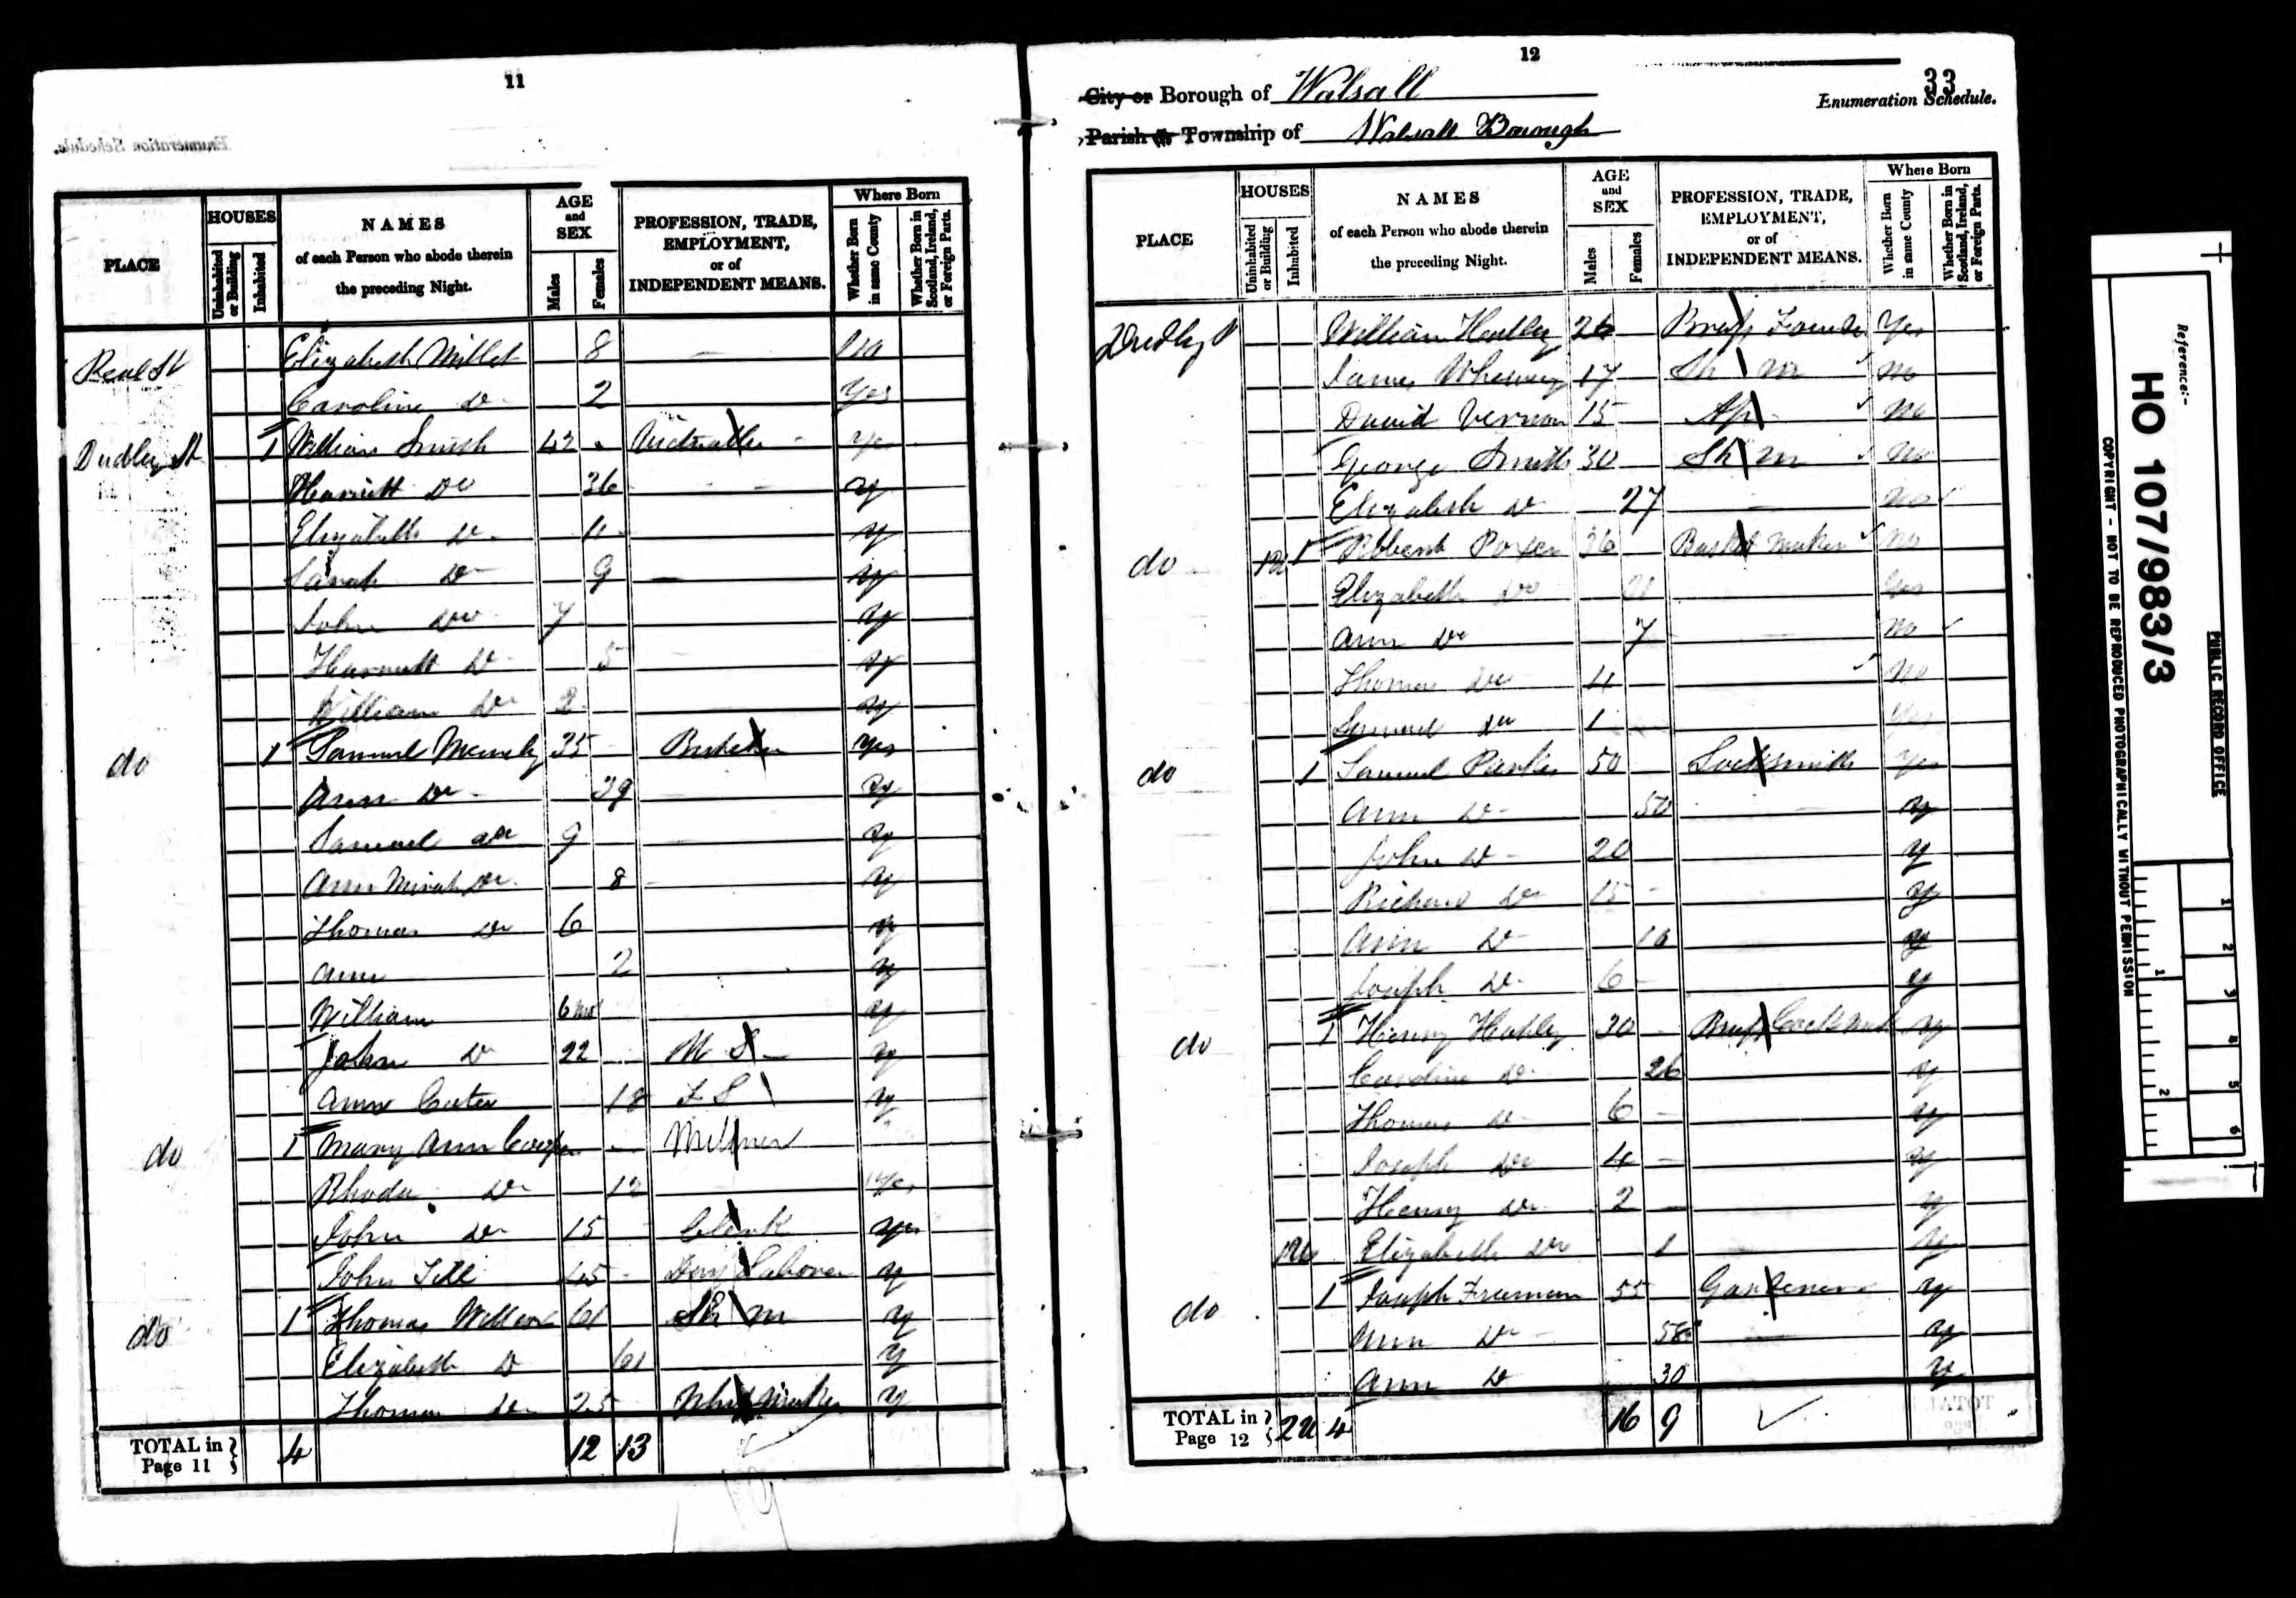 11
PLACE
HOUSES
Uninhabited or Building
Inhabited
NAMES
of each Person who abode therein
the preceding Night.
AGE
and
SEX
Males
Females
PROFESSION, TRADE,
EMPLOYMENT,
or of
INDEPENDENT MEANS.
Where Born
Whether Born in same County
Whether Born in Scotland, Ireland, or Foreign Parts.
Elizabeth Millet 8
Caroline Do 2 Yes
Dudley St 1 William Smith 42 Victualler Yes
Harriett Do 36 y
Elizabeth Do 11 y
Sarah Do 9 y
John Do 7 y
Harriett Do 5 y
William Do 2 y
do 1 Samuel 35 Butcher Yes
Ann Do 39 y
Samuel Do 9 y
Ann Do 8 y
Thomas Do 6 y
Ann 2 y
William 6 Mo y
John Do 22 M S y
Ann 18 F S y
do 1 Mary Ann Cooper Milliner
Rhoda Do 12 Yes
John Do 15 Clerk Yes
John 45 Day Labourer y
do 1 Thomas 61 Sh m y
Elizabeth D 61 y
Thomas Do 25 Whip Maker y
TOTAL in Page 11 4 12 13
12
33
City or Borough of Walsall
Enumeration Schedule.
Parish or Township of Walsall Borough
PLACE
HOUSES
Uninhabited or Building
Inhabited
NAMES
of each Person who abode therein
the preceding Night.
AGE
and
SEX
Males
Females
PROFESSION, TRADE,
EMPLOYMENT,
or of
INDEPENDENT MEANS.
Where Born
Whether Born in same County
Whether Born in Scotland, Ireland, or Foreign Parts.
Dudley St William 26 Brass Founder Yes
James 17 Sh m No
David Vernon 15 Ap No
George Smith 30 Sh m No
Elizabeth Do 27 No
do 1 Robert 36 Basket Maker No
Elizabeth Do Yes
Ann Do 7 No
Thomas Do 4 No
Samuel Do 1 Yes
do 1 Samuel Parkes 50 Locksmith Yes
Ann Do 50 y
John Do 20 y
Richard Do 15 y
Ann Do 10 y
Joseph Do 6 y
do 1 Henry 30 Brass Cock y
Caroline Do 26 y
Thomas Do 6 y
Joseph Do 4 y
Henry Do 2 y
Elizabeth Do 1 y
do 1 Joseph Freeman 55 Gardener y
Ann Do 58 y
Ann D 30 y
TOTAL in Page 12 2U 4 16 9
Reference:-
HO 107/983/3
PUBLIC RECORD OFFICE
COPYRIGHT - NOT TO BE REPRODUCED PHOTOGRAPHICALLY WITHOUT PERMISSION
1
2
3
4
5
6
1
2